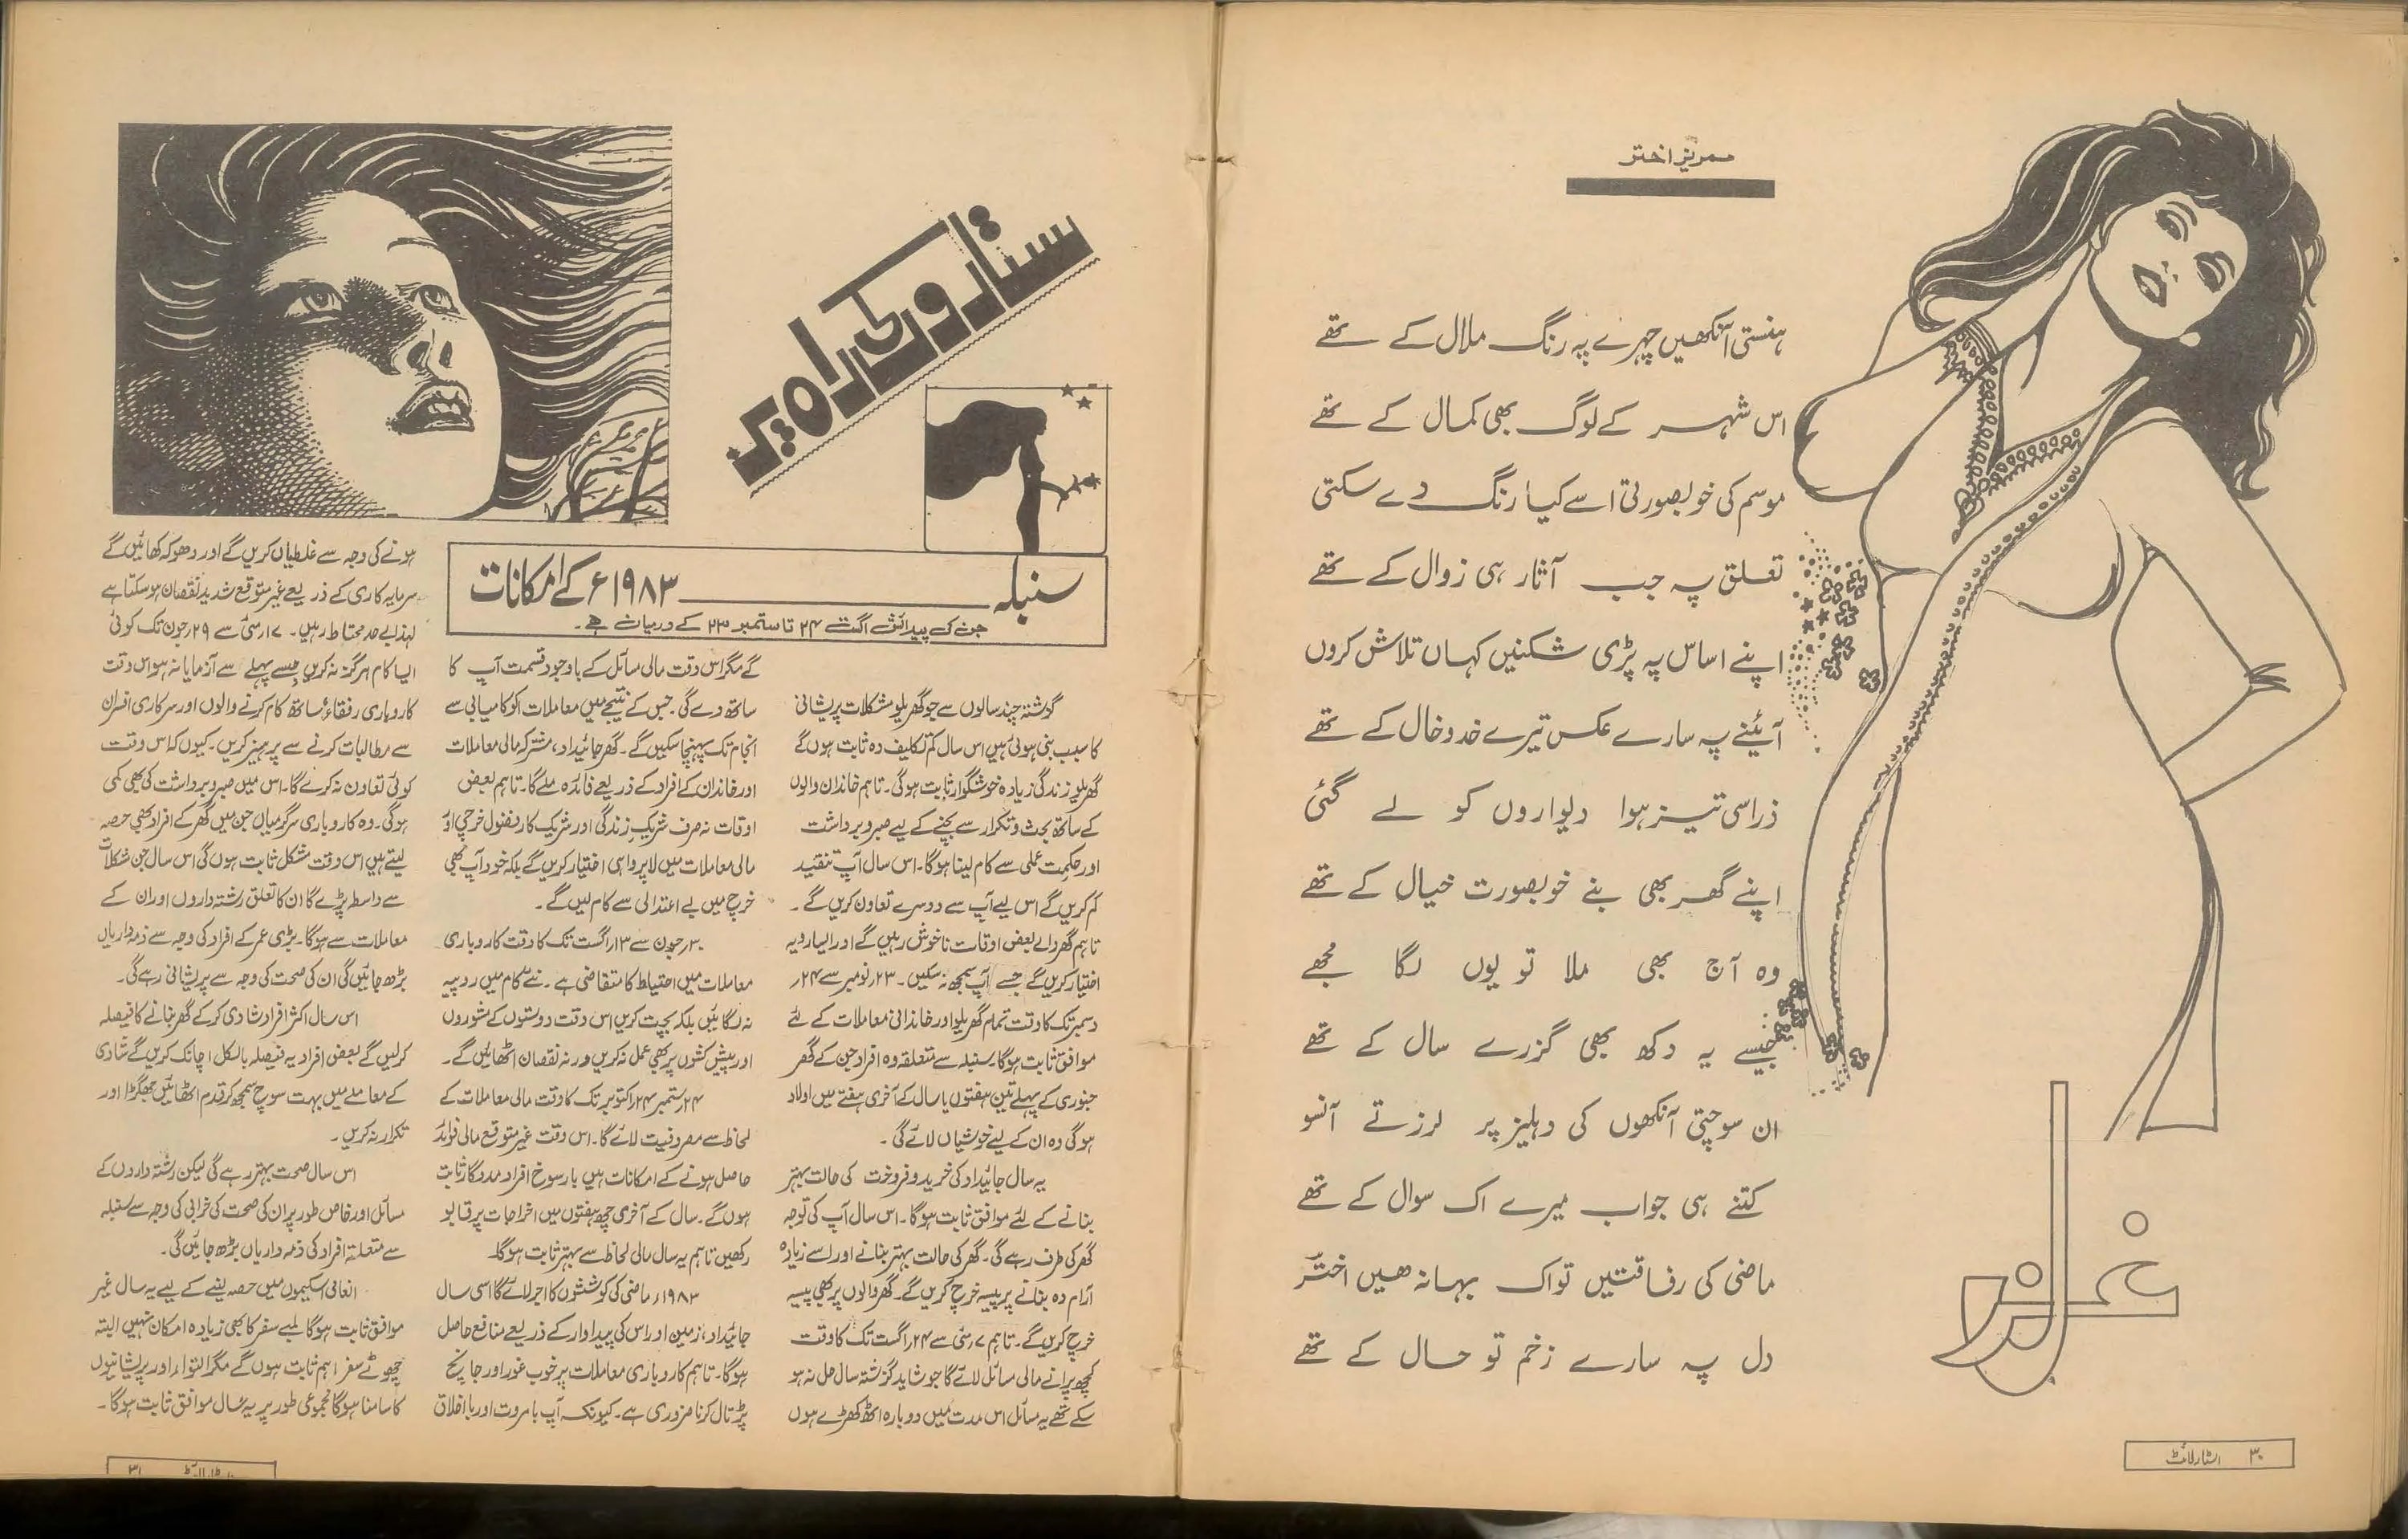 ثمرینہ اختر
ہنستی آنکھیں چہرے پہ رنگ ملال کے تھے
اس شہر کے لوگ بھی کمال کے تھے
موسم کی خوبصورتی اسے کیا رنگ دے سکتی
تعلق پہ جب آثار ہی زوال کے تھے
اپنے اساس پہ پڑی شکنیں کہاں تلاش کروں
آئینے پہ سارے عکس تیرے خدوخال کے تھے
ذرا سی تیز ہوا دیواروں کو لے گئی
اپنے گھر بھی بنے خوبصورت خیال کے تھے
وہ آج بھی ملا تو یوں لگا مجھے
جیسے یہ دکھ بھی گزرے سال کے تھے
ان سوچتی آنکھوں کی دہلیز پر لرزتے آنسو
کتنے ہی جواب میرے اک سوال کے تھے
ماضی کی رفاقتیں تو اک بہانہ ھیں اختر
دل پہ سارے زخم تو حال کے تھے
غزل
۳۰ اسٹار لائٹ
ستاروں کی راہ میں
سنبلہ ۱۹۸۳ء کے امکانات
جن کی پیدائش اگست ۲۴ تا ستمبر ۲۳ کے درمیان ہے۔
گذشتہ چند سالوں سے جو گھریلو مشکلات پریشانی
کا سبب بنی ہوئی ہیں اس سال کم تکلیف دہ ثابت ہوں گے
گھریلو زندگی زیادہ خوشگوار ثابت ہوگی۔ تاہم خاندان والوں
کے ساتھ بحث و تکرار سے بچنے کے لیے صبر و برداشت
اور حکمت عملی سے کام لینا ہوگا۔ اس سال آپ تنقید
کم کریں گے اس لیے آپ سے دوسرے تعاون کریں گے۔
تاہم گھر والے بعض اوقات ناخوش رہیں گے اور ایسا رویہ
اختیار کریں گے جسے آپ سمجھ نہ سکیں۔ ۲۳ر نومبر سے ۲۴ر
دسمبر تک کا وقت تمام گھریلو اور خاندانی معاملات کے لئے
موافق ثابت ہوگا۔ سنبلہ سے متعلقہ وہ افراد جن کے گھر
جنوری کے پہلے تین ہفتوں یا سال کے آخری ہفتے میں اولاد
ہوگی وہ ان کے لیے خوشیاں لائے گی۔
یہ سال جائیداد کی خرید و فروخت کی حالت بہتر
بنانے کے لئے موافق ثابت ہوگا۔ اس سال آپ کی توجہ
گھر کی طرف رہے گی۔ گھر کی حالت بہتر بنانے اور اسے زیادہ
آرام دہ بنانے پر پیسہ خرچ کریں گے۔ گھر والوں پر بھی پیسہ
خرچ کریں گے۔ تاہم ۷ر مئی سے ۲۴ر اگست تک کا وقت
کچھ پرانے مالی مسائل لائے گا جو شاید گذشتہ سال حل نہ ہو
سکے تھے یہ مسائل اس مدت میں دوبارہ اٹھ کھڑے ہوں
گے مگر اس وقت مالی مسائل کے باوجود قسمت آپ کا
ساتھ دے گی۔ جس کے نتیجے میں معاملات کو کامیابی سے
انجام تک پہنچا سکیں گے۔ گھر جائیداد، مشترکہ مالی معاملات
اور خاندان کے افراد کے ذریعے فائدہ ملے گا۔ تاہم بعض
اوقات نہ صرف شریک زندگی اور شریک کار فضول خرچی اور
مالی معاملات میں لاپرواہی اختیار کریں گے بلکہ خود آپ بھی
خرچ میں بے اعتدالی سے کام لیں گے۔
۳۰ر جون سے ۱۳ر اگست تک کا وقت کاروباری
معاملات میں احتیاط کا متقاضی ہے۔ نئے کام میں روپیہ
نہ لگائیں بلکہ بچت کریں اس وقت دوستوں کے مشوروں
اور پیش کشوں پر بھی عمل نہ کریں ورنہ نقصان اٹھائیں گے۔
۲۴ر ستمبر ۲۴ر اکتوبر تک کا وقت مالی معاملات کے
لحاظ سے مصروفیت لائے گا۔ اس وقت غیر متوقع مالی فوائد
حاصل ہونے کے امکانات ہیں بارسوخ افراد مددگار ثابت
ہوں گے۔ سال کے آخری چھ ہفتوں میں اخراجات پر قابو
رکھیں تاہم یہ سال مالی لحاظ سے بہتر ثابت ہوگا۔
۱۹۸۳ر ماضی کی کوششوں کا اجر لائے گا اسی سال
جائیداد، زمین اور اس کی پیداوار کے ذریعے منافع حاصل
ہوگا۔ تاہم کاروباری معاملات پر خوب غور اور جانچ
پڑتال کرنا ضروری ہے۔ کیونکہ آپ بامروت اور با اخلاق
ہونے کی وجہ سے غلطیاں کریں گے اور دھوکہ کھائیں گے
سرمایہ کاری کے ذریعے غیر متوقع شدید نقصان ہو سکتا ہے
لہذا بے حد محتاط رہیں۔ ۱۷ر مئی سے ۲۹ر جون تک کوئی
ایسا کام ہرگز نہ کریں جسے پہلے سے آزمایا نہ ہو اس وقت
کاروباری رفقاء ساتھ کام کرنے والوں اور سرکاری افسران
سے مطالبات کرنے سے پرہیز کریں۔ کیوں کہ اس وقت
کوئی تعاون نہ کرے گا۔ اس میں صبر و برداشت کی بھی کمی
ہوگی۔ وہ کاروباری سرگرمیاں جن میں گھر کے افراد بھی حصہ
لیتے ہیں اس وقت مشکل ثابت ہوں گی اس سال جن مشکلات
سے واسطہ پڑے گا ان کا تعلق رشتہ داروں اور ان کے
معاملات سے ہوگا۔ بڑی عمر کے افراد کی وجہ سے ذمہ داریاں
بڑھ جائیں گی ان کی صحت کی وجہ سے پریشانی رہے گی۔
اس سال اکثر افراد شادی کر کے گھر بنانے کا فیصلہ
کر لیں گے بعض افراد یہ فیصلہ بالکل اچانک کریں گے شادی
کے معاملے میں بہت سوچ سمجھ کر قدم اٹھائیں جھگڑا اور
تکرار نہ کریں۔
اس سال صحت بہتر رہے گی لیکن رشتہ داروں کے
مسائل اور خاص طور پر ان کی صحت کی خرابی کی وجہ سے سنبلہ
سے متعلقہ افراد کی ذمہ داریاں بڑھ جائیں گی۔
انعامی اسکیموں میں حصہ لینے کے لیے یہ سال غیر
موافق ثابت ہوگا لمبے سفر کا بھی زیادہ امکان نہیں البتہ
چھوٹے سفر اہم ثابت ہوں گے مگر التواء اور پریشانیوں
کا سامنا ہوگا مجموعی طور پر یہ سال موافق ثابت ہوگا۔
۳۱